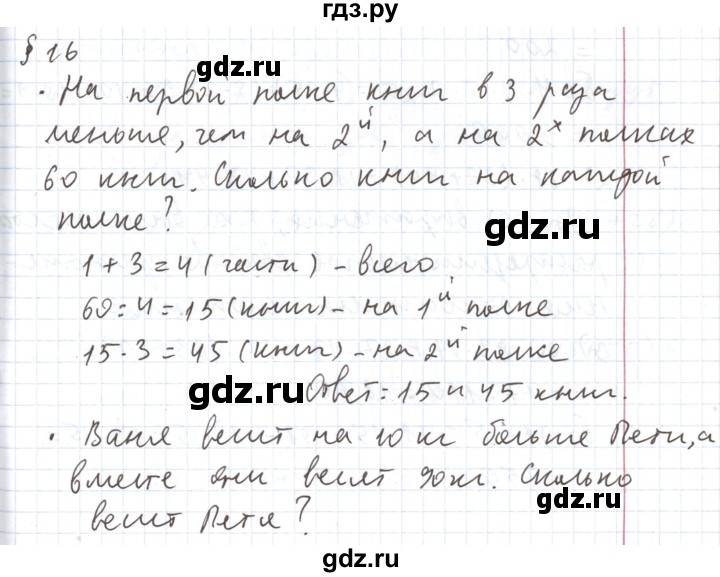 гдз.ру
§ 16
· На первой полке книг в 3 раза
меньше, чем на 2й, а на 2х полках
60 книг. Сколько книг на каждой
полке?
gdz.ru
1 + 3 = 4 (части) - всего
60 : 4 = 15 (книг) - на 1й полке
15 · 3 = 45 (книг) - на 2й полке
gdz.ru
Ответ: 15 и 45 книг.
· Ваня весит на 10 кг больше Пети, а
вместе они весят 90 кг. Сколько
весит Петя?
gdz.ru
gdz.ru